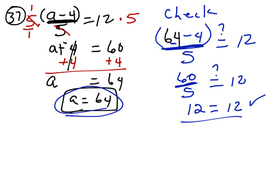 37) 5/1 (a-4)/5 = 12 · 5
a - 4 = 60
+4 +4
a = 64
a = 64
Check
(64-4)/5 ?= 12
60/5 ?= 12
12 = 12 ✓